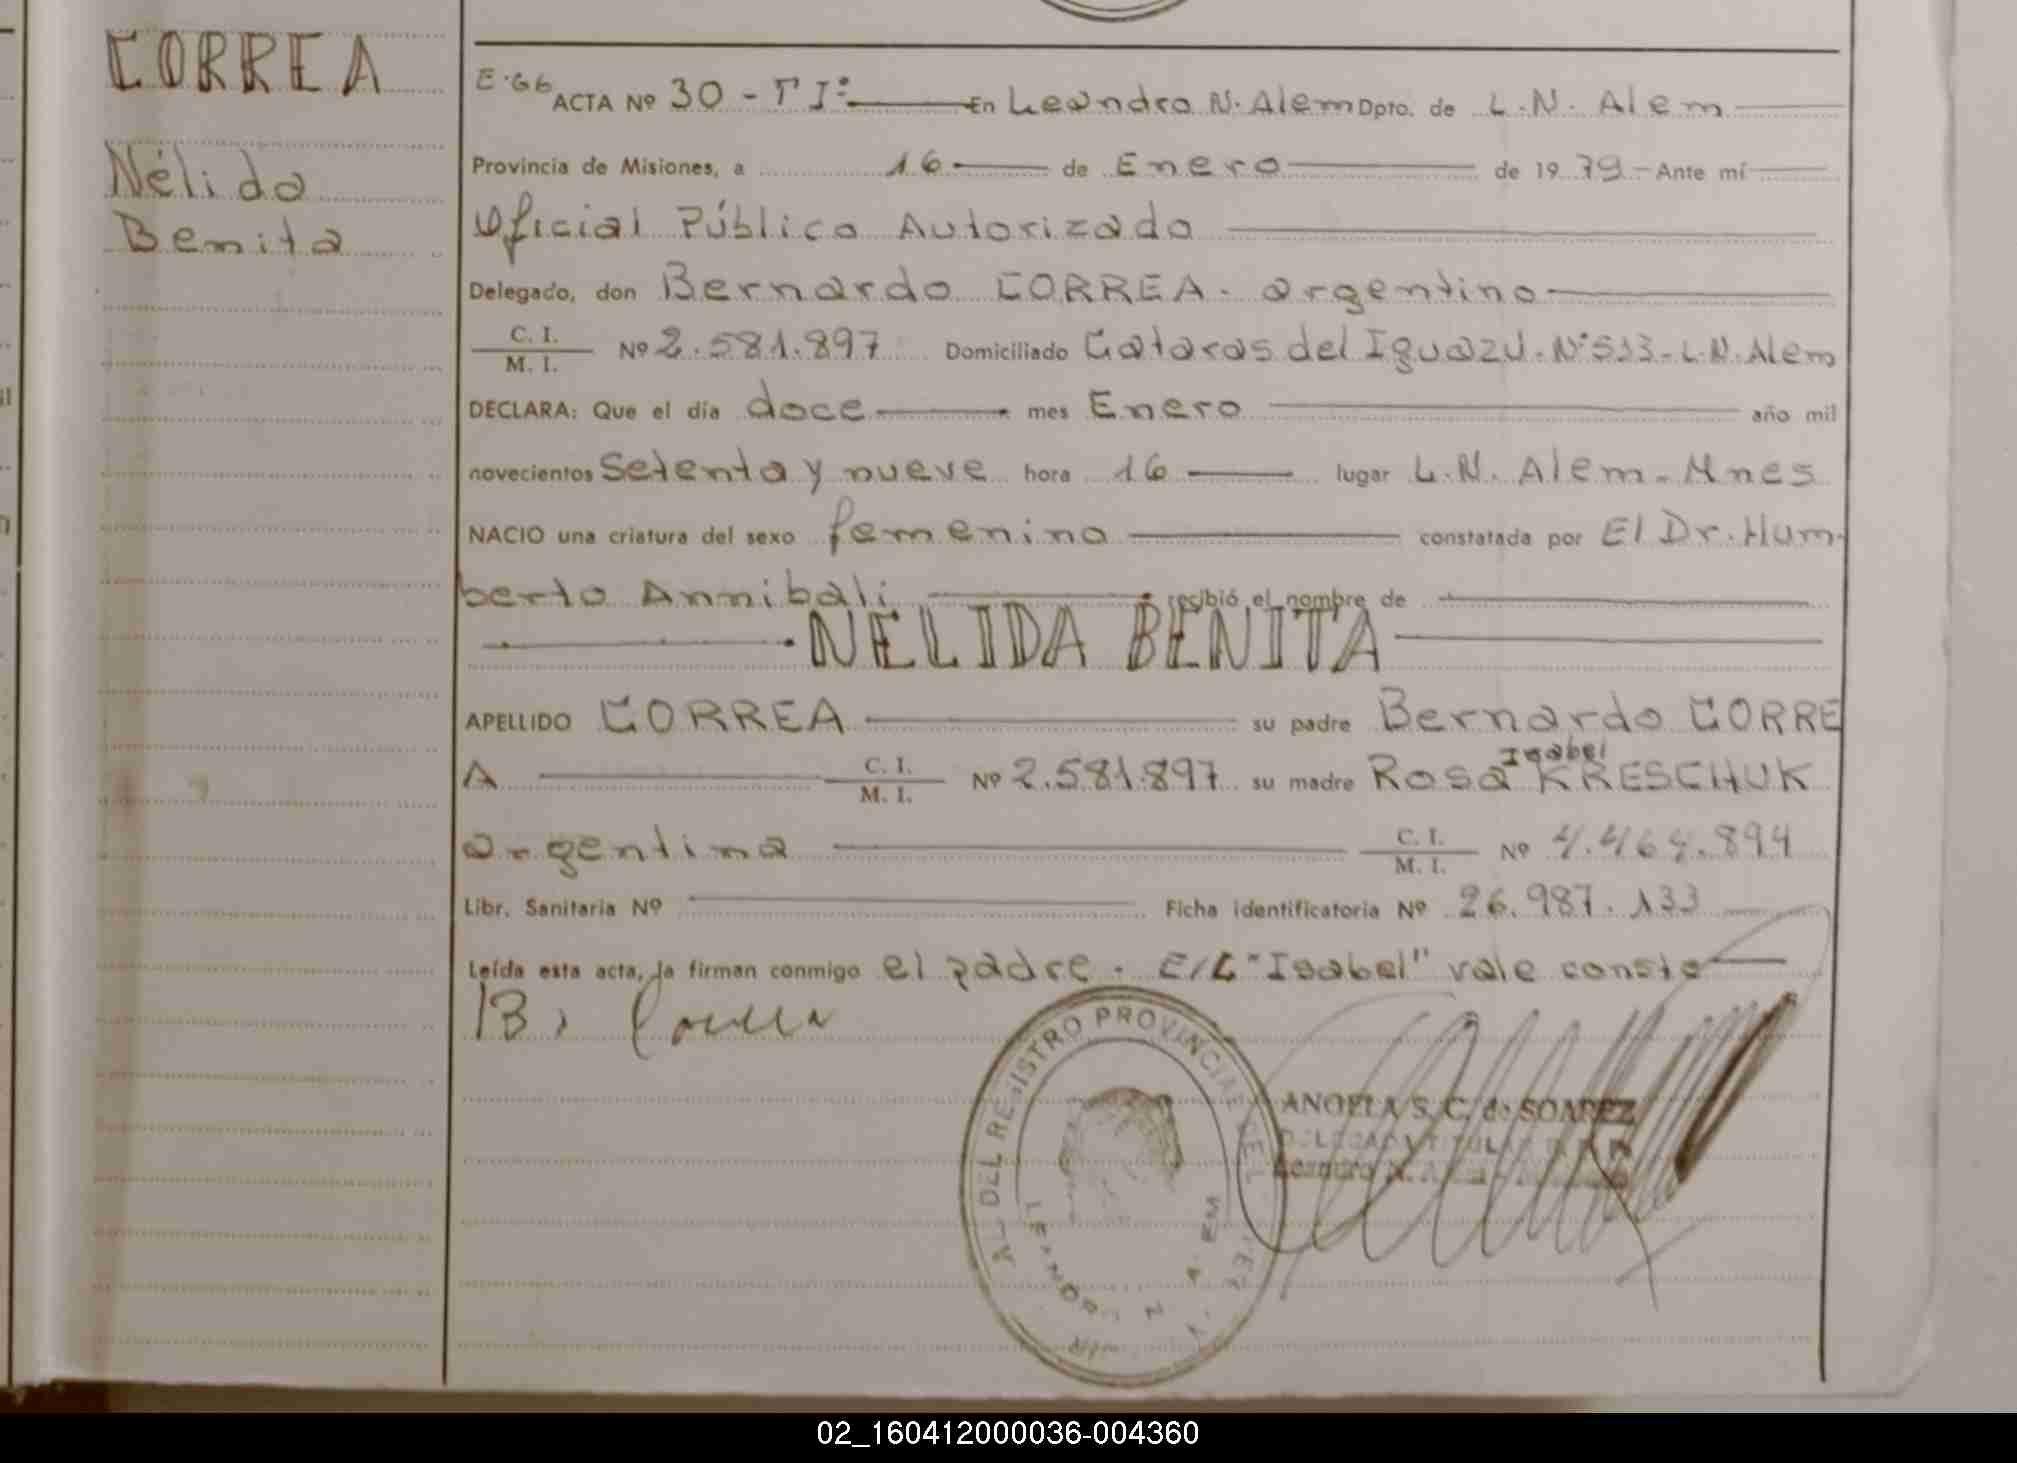 CORREA
Nélida
Benita
E.66 ACTA Nº 30 - TIº En Leandro N. Alem Dpto. de L.N. Alem
Provincia de Misiones, a 16 de Enero de 1979 - Ante mí
Oficial Público Autorizado
Delegado, don Bernardo CORREA - argentino
C. I.
M. I.
Nº 2.581.897 Domiciliado Cataras del Iguazú. Nº 513 - L.N. Alem
DECLARA: Que el día doce mes Enero año mil
novecientos Setenta y nueve hora 16 lugar L.N. Alem - Mnes
NACIO una criatura del sexo femenino constatada por El Dr. Hum-
berto Annibali recibió el nombre de
NELIDA BENITA
APELLIDO CORREA su padre Bernardo CORRE
Isabel
A C. I. M. I. Nº 2.581.897 su madre Rosa KRESCHUK
argentina C. I. M. I. Nº 4.464.894
Libr. Sanitaria Nº Ficha identificatoria Nº 26.987.133
Leída esta acta, la firman conmigo el padre. E/L "Isabel" vale conste
B. Correa
AL DEL REGISTRO PROVINCIAL DE L
ANGELA S. C. de SOAREZ
DELEGADA TITULAR
Leandro N. Alem
02_160412000036-004360